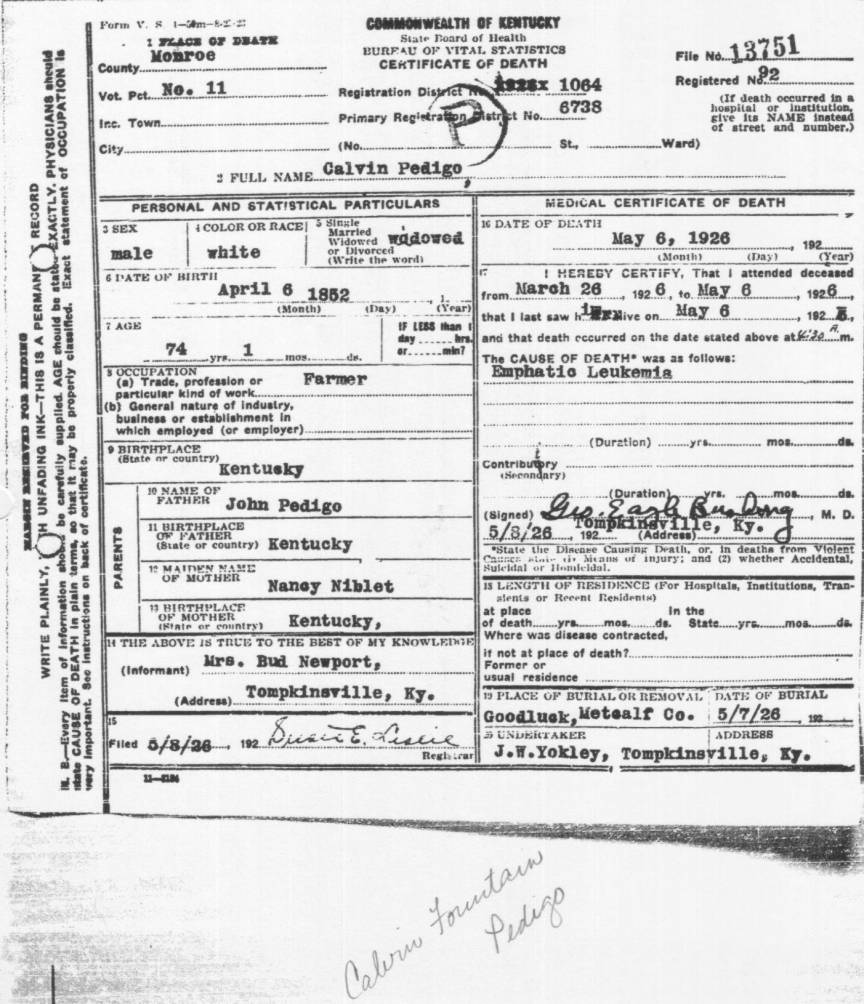 Form V. S.
COMMONWEALTH OF KENTUCKY
State Board of Health
BUREAU OF VITAL STATISTICS
CERTIFICATE OF DEATH
File No. 13751
Registered No. 92
(If death occurred in a hospital or institution, give its NAME instead of street and number.)
1 PLACE OF DEATH
County Monroe
Vot. Pct. No. 11
Inc. Town
City
Registration District No. 1064
Primary Registration District No. 6738
(No. St., Ward)
P
2 FULL NAME Calvin Pedigo
PERSONAL AND STATISTICAL PARTICULARS
3 SEX
male
4 COLOR OR RACE
white
5 Single
Married
Widowed
or Divorced
(Write the word)
widowed
6 DATE OF BIRTH
April 6 1852
(Month) (Day) (Year)
7 AGE
74 yrs. 1 mos. ds.
IF LESS than 1
day hrs.
or min?
8 OCCUPATION
(a) Trade, profession or
particular kind of work Farmer
(b) General nature of industry,
business or establishment in
which employed (or employer)
9 BIRTHPLACE
(State or country)
Kentucky
PARENTS
10 NAME OF
FATHER John Pedigo
11 BIRTHPLACE
OF FATHER
(State or country) Kentucky
12 MAIDEN NAME
OF MOTHER Nancy Niblet
13 BIRTHPLACE
OF MOTHER
(State or country) Kentucky,
14 THE ABOVE IS TRUE TO THE BEST OF MY KNOWLEDGE
(Informant) Mrs. Bud Newport,
(Address) Tompkinsville, Ky.
15
Filed 5/8/26, 192 Susie E. Leslie
Registrar
11—1184
MEDICAL CERTIFICATE OF DEATH
16 DATE OF DEATH
May 6, 1926, 192
(Month) (Day) (Year)
17 I HEREBY CERTIFY, That I attended deceased
from March 26, 1926, to May 6, 1926,
that I last saw him alive on May 6, 1926,
and that death occurred on the date stated above at 4:30 A. m.
The CAUSE OF DEATH* was as follows:
Emphatic Leukemia
(Duration) yrs. mos. ds.
Contributory
(Secondary)
(Duration) yrs. mos. ds.
(Signed) Geo. Earle , M. D.
5/8/26, 192 (Address) Tompkinsville, Ky.
*State the Disease Causing Death, or, in deaths from Violent
Causes state (1) Means of injury; and (2) whether Accidental,
Suicidal or Homicidal.
18 LENGTH OF RESIDENCE (For Hospitals, Institutions, Tran-
sients or Recent Residents)
at place In the
of death yrs. mos. ds. State yrs. mos. ds.
Where was disease contracted,
if not at place of death?
Former or
usual residence
19 PLACE OF BURIAL OR REMOVAL
Goodluck, Metcalf Co.
DATE OF BURIAL
5/7/26, 192
20 UNDERTAKER
ADDRESS
J.W.Yokley, Tompkinsville, Ky.
MARGIN RESERVED FOR BINDING
WRITE PLAINLY, WITH UNFADING INK—THIS IS A PERMANENT RECORD
N. B.—Every item of information should be carefully supplied. AGE should be stated EXACTLY. PHYSICIANS should
state CAUSE OF DEATH in plain terms, so that it may be properly classified. Exact statement of OCCUPATION is
very important. See instructions on back of certificate.
Calvin Fountain
Pedigo